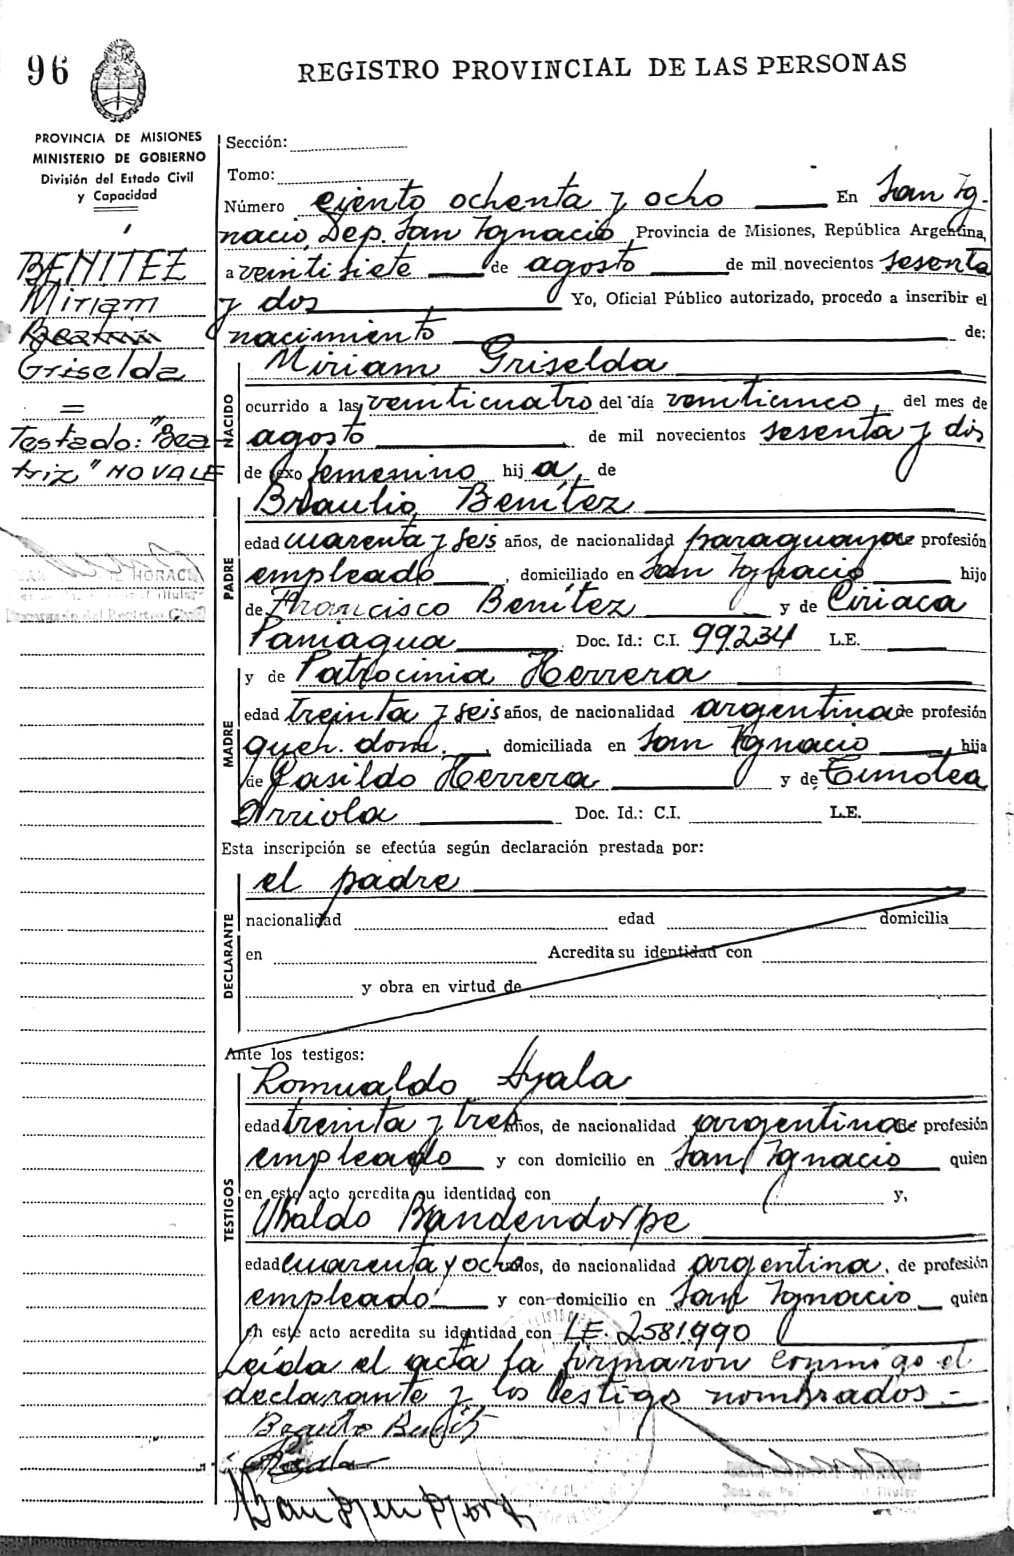 96
REGISTRO PROVINCIAL DE LAS PERSONAS
PROVINCIA DE MISIONES
MINISTERIO DE GOBIERNO
División del Estado Civil
y Capacidad
BENITEZ
Miriam
Beatriz
Griselda
=
Testado: "Bea-
triz" NO VALE
HORACI
Titular
del Registro Civil
Sección:
Tomo:
Número ciento ochenta y ocho En San Ig-
nacio, Dep. San Ignacio, Provincia de Misiones, República Argentina,
a veintisiete de agosto de mil novecientos sesenta
y dos Yo, Oficial Público autorizado, procedo a inscribir el
nacimiento de:
NACIDO
Miriam Griselda
ocurrido a las veinticuatro del día veinticinco, del mes de
agosto de mil novecientos sesenta y dos
de sexo femenino hij a de
PADRE
Braulio Benítez
edad cuarenta y seis años, de nacionalidad paraguaya de profesión
empleado, domiciliado en San Ignacio hijo
de Francisco Benítez y de Ciriaca
Paniagua Doc. Id.: C.I. 99.234 L.E.
MADRE
y de Patrocinia Herrera
edad treinta y seis años, de nacionalidad argentina de profesión
queh. dom., domiciliada en San Ignacio, hija
de Casildo Herrera y de Timotea
Arriola Doc. Id.: C.I. L.E.
Esta inscripción se efectúa según declaración prestada por:
DECLARANTE
el padre
nacionalidad edad domicilia
en Acredita su identidad con
y obra en virtud de
Ante los testigos:
TESTIGOS
Romualdo Ayala
edad treinta y tres años, de nacionalidad argentina de profesión
empleado y con domicilio en San Ignacio quien
en este acto acredita su identidad con y,
Ubaldo Bandendorpe
edad cuarenta y ocho años, de nacionalidad argentina, de profesión
empleado y con domicilio en San Ignacio quien
en este acto acredita su identidad con L.E. 2581990
Leída el acta la firmaron conmigo el
declarante y los testigos nombrados.-